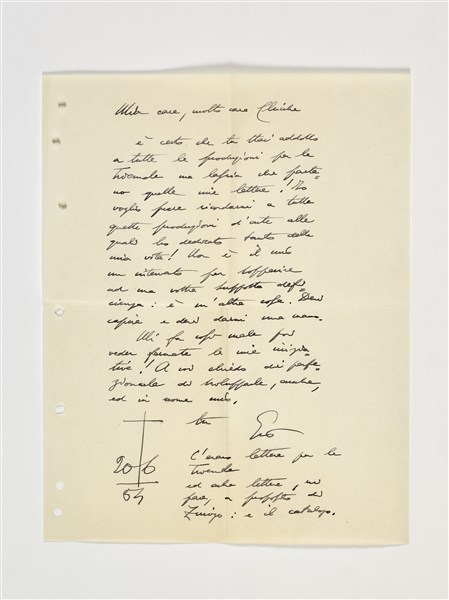 Mia cara, molto cara Cliche
è certo che tu stai addetto
a tutte le produzioni per la
Triennale ma lascia che parta-
no quelle mie lettere! Io
voglio pure ricordarmi a tutte
queste produzioni d'arte alle
quali ho dedicato tanto della
mia vita! Non è il mio
un intervento per sopperire
ad una vostra supposta defi-
cienza: è un'altra cosa. Devi
capire e devi darmi una mano.
Mi fa così male poi
veder fermate le mie inizia-
tive! A voi chiedo di perfe-
zionarle di svilupparle, anche,
ed in nome mio.
tuo
20 6
54
C'erano lettere per la
Triennale
ed altre lettere, mi
pare, a proposito di
: e il catalogo.